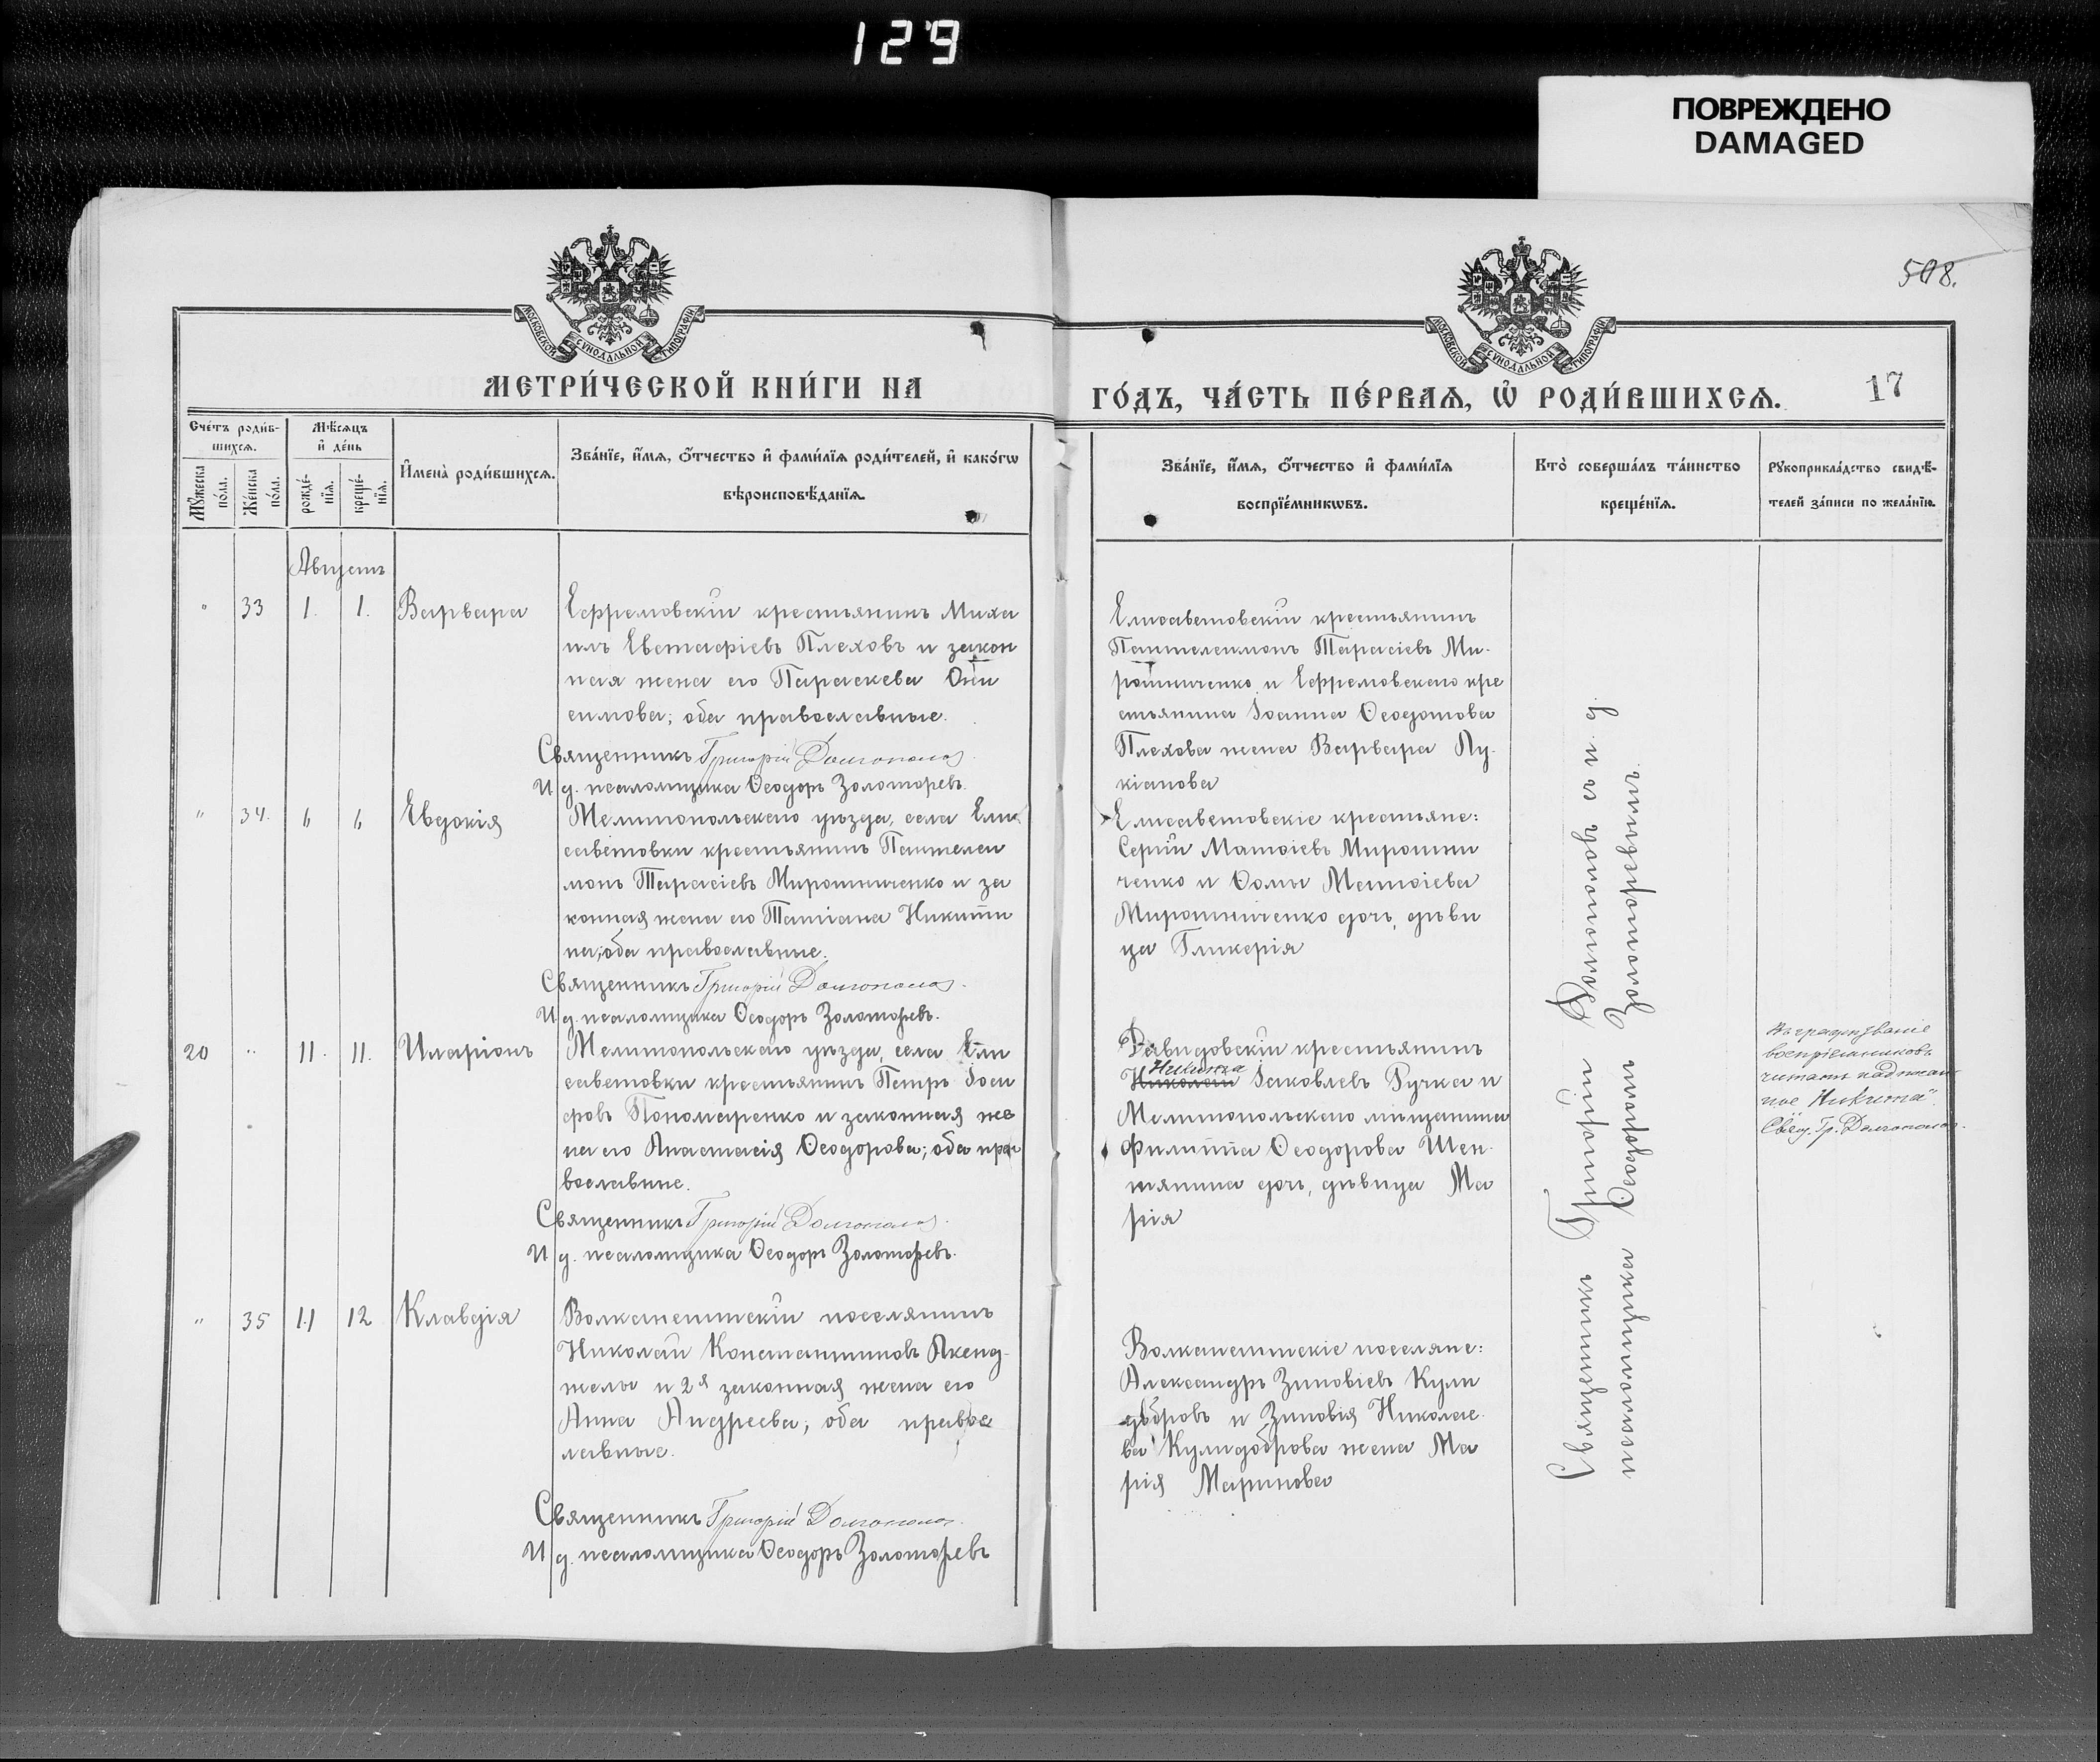 129
ПОВРЕЖДЕНО
DAMAGED
508.
МОСКОВСКОЙ СѴНОДАЛЬНОЙ ТИПОГРАФІИ
МОСКОВСКОЙ СѴНОДАЛЬНОЙ ТИПОГРАФІИ
МЕТРИ́ЧЕСКОЙ КНИ́ГИ НА
ГО́ДЪ, ЧА́СТЬ ПЕ́РВАѦ, Ѡ҆ РОДИ́ВШИХСѦ.
17
Сче́тъ роди́в-
шихсѧ.
Мꙋ́жеска по́ла.
Же́нска по́ла.
Мѣ́сѧцъ
и҆ де́нь
рожде́-
нїѧ.
креще́-
нїѧ.
И҆мена̀ роди́вшихсѧ.
Зва́нїе, и҆́мѧ, ѻ҆́тчество и҆ фами́лїѧ роди́телей, и҆ како́гѡ
вѣроисповѣ́данїѧ.
Зва́нїе, и҆́мѧ, ѻ҆́тчество и҆ фами́лїѧ
воспрїе́мникѡвъ.
Кто̀ соверша́лъ та́инство
креще́нїѧ.
Рꙋкоприкла́дство свидѣ́-
телей за́писи по жела́нїю.
Августъ
" 33 1. 1. Варвара
Ефремовскій крестьянинъ Миха
илъ Евстафіевъ Плеховъ и закон
ная жена его Параскева Они
симова; оба православные.
Священникъ Григорій Долгополов
И д. псаломщика Ѳеодоръ Золоторевъ.
Елисаветовскій крестьянинъ
Пантелеимонъ Тарасіевъ Ми-
рошниченко и Ефремовскаго кре
стьянина Іоанна Ѳеодотова
Плехова жена Варвара Лу-
кіанова
" 34. 6 6 Евдокія
Мелитопольскаго уѣзда, села Ели
саветовки крестьянинъ Пантелеи
монъ Тарасіевъ Мирошниченко и за
конная жена его Татіана Никити
на; оба православные.
Священникъ Григорій Долгополов.
И д. псаломщика Ѳеодоръ Золоторевъ.
Елисаветовскіе крестьяне:
Сергій Матѳіевъ Мирошни
ченко и Ѳомы Матѳіева
Мирошниченко дочь, дѣви
ца Гликерія
20 " 11. 11. Иларіонъ
Мелитопольскаго уѣзда, села Ели
саветовки крестьянинъ Петръ Іоси
фовъ Пономаренко и законная же
на его Анастасія Ѳеодорова; оба пра
вославные.
Священникъ Григорій Долгополов.
И д. псаломщика Ѳеодоръ Золоторевъ.
Давидовскій крестьянинъ
Никита
Николай Іаковлевъ Ручка и
Мелитопольскаго мѣщанина
Филиппа Ѳеодорова Шен-
тянина дочь, дѣвица Ма
рія
Въ графѣ званіе
воспріемниковъ
читать надписан
ное "Никита".
Свящ. Гр. Долгополов.
" 35 11 12 Клавдія
Волканештскій поселянинъ
Николай Константиновъ Акенд-
желы и 2я законная жена его
Анна Андреева; оба правос
лавные.
Священникъ Григорій Долгополов.
И д. псаломщика Ѳеодоръ Золоторевъ
Волканештскіе поселяне:
Александръ Зиновіевъ Кули
добровъ и Зиновія Николае-
ва Кулидоброва жена Ма
рія Маринова
Священникъ Григорій Долгополовъ съ и. д.
псаломщикомъ Ѳеодоромъ Золоторевымъ.